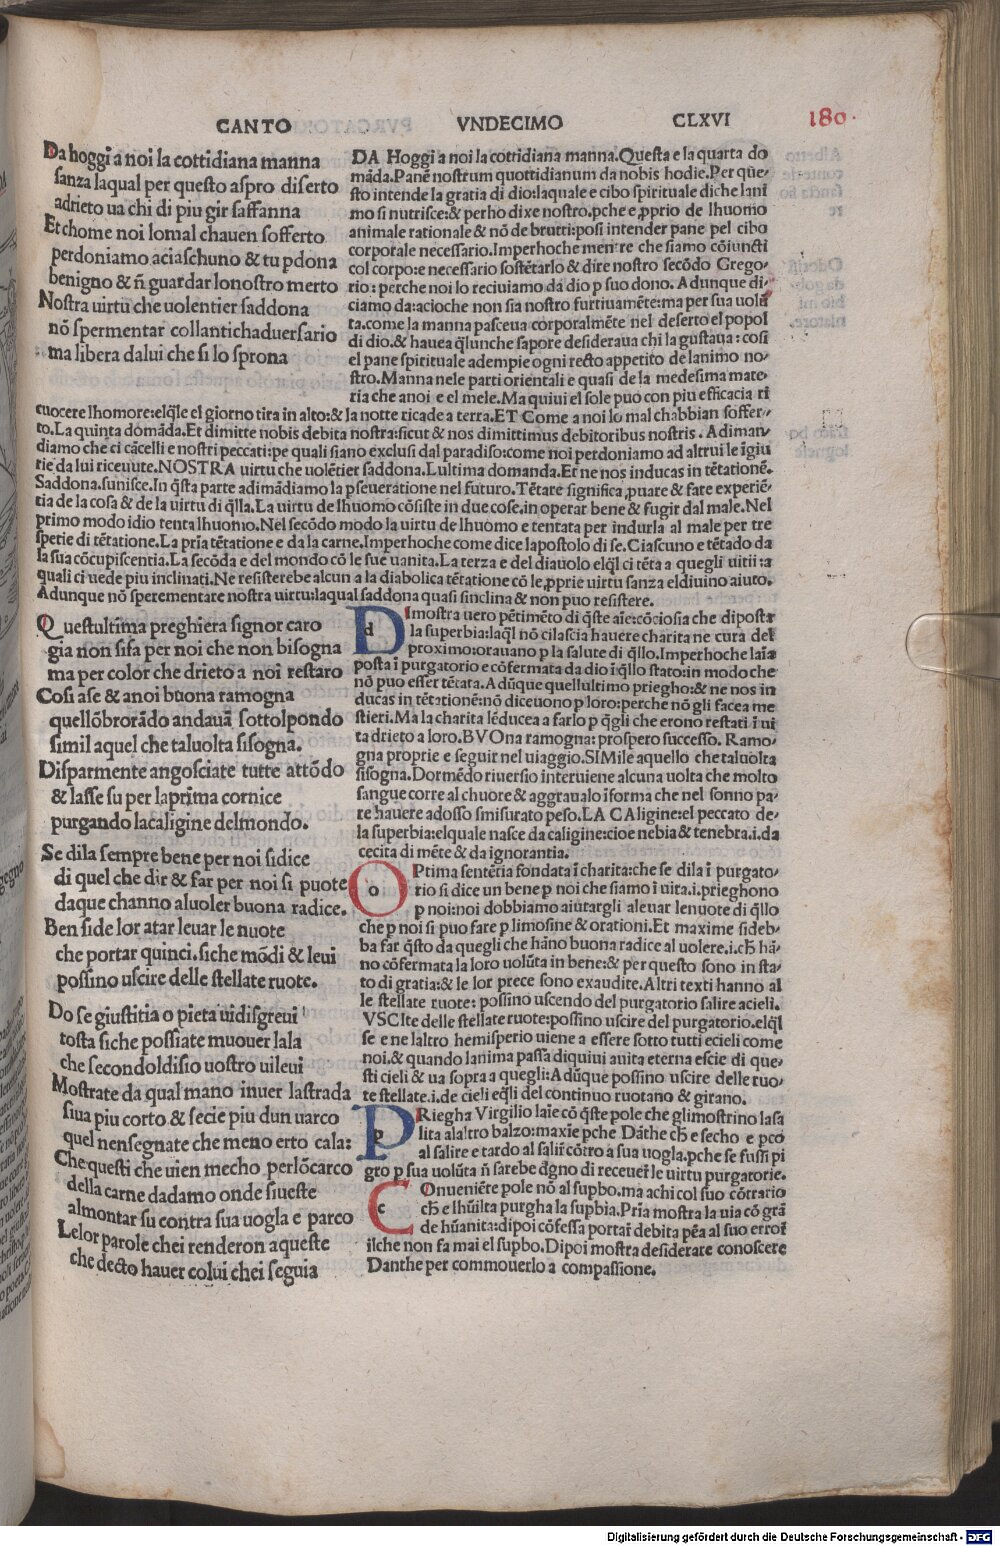 CANTO VNDECIMO CLXVI 180.
Da hoggi a noi la cottidiana manna
sanza laqual per questo aspro diserto
adrieto ua chi di piu gir saffanna
Et chome noi lomal chauen sofferto
perdoniamo aciaschuno & tu pdona
benigno & ñ guardar lonostro merto
Nostra uirtu che uolentier saddona
nõ spermentar collantichaduersario
ma libera dalui che si lo sprona
DA Hoggi a noi la cottidiana manna.Questa e la quarta do
mãda.Panẽ nostrum quottidianum da nobis hodie.Per que
sto intende la gratia di dio:laquale e cibo spirituale diche lani
mo si nutrisce:& perho dixe nostro.pche e pprio de lhuomo
animale rationale & nõ de brutti:posi intender pane pel cibo
corporale necessario.Imperhoche mentre che siamo cõiuncti
col corpo:e necessario sostẽtarlo & dire nostro secõdo Grego-
rio: perche noi lo reciuiamo da dio p suo dono. Adunque di-
ciamo da:acioche non sia nostro furtiuamẽte:ma per sua uolũ
ta.come la manna pasceua corporalmẽte nel deserto el popol
di dio.& hauea qlunche sapore desideraua chi la gustaua : cosi
el pane spirituale adempie ogni recto appetito de lanimo no-
stro.Manna nele parti orientali e quasi de la medesima mate-
ria che anoi e el mele.Ma quiui el sole puo con piu efficacia ri
cuocere lhomore:elqle el giorno tira in alto:& la notte ricade a terra.ET Come a noi lo mal chabbian soffer-
to.La quinta domãda.Et dimitte nobis debita nostra:sicut & nos dimittimus debitoribus nostris . Adiman-
diamo che ci cãcelli e nostri peccati:pe quali siano exclusi dal paradiso:come noi perdoniamo ad altrui le ĩgiu
rie da lui riceuute.NOSTRA uirtu che uolẽtier saddona.Lultima domanda.Et ne nos inducas in tẽtationẽ.
Saddona.sunisce.In qsta parte adimãdiamo la pseueratione nel futuro.Tẽtare significa puare & fare experiẽ-
tia de la cosa & de la uirtu di qlla.La uirtu de lhuomo cõsiste in due cose.in operar bene & fugir dal male.Nel
primo modo idio tenta lhuomo.Nel secõdo modo la uirtu de lhuomo e tentata per indurla al male per tre
spetie di tẽtatione.La prĩa tẽtatione e da la carne.Imperhoche come dice lapostolo di se.Ciascuno e tẽtado da
la sua cõcupiscentia.La secõda e del mondo cõ le sue uanita.La terza e del diauolo elql ci tẽta a quegli uitii :a
quali ci uede piu inclinati.Ne resisterebe alcun a la diabolica tẽtatione cõ le pprie uirtu sanza eldiuino aiuto.
Adunque nõ sperementare nostra uirtu:laqual saddona quasi sinclina & non puo resistere.
Questultima preghiera signor caro
gia non sifa per noi che non bisogna
ma per color che drieto a noi restaro
Cosi ase & anoi buona ramogna
quellõbrorãdo andauã sottolpondo
simil aquel che taluolta sisogna.
Disparmente angosciate tutte attõdo
& lasse su per laprima cornice
purgando lacaligine delmondo.
Se dila sempre bene per noi sidice
di quel che dir & far per noi si puote
daque channo aluoler buona radice.
Ben side lor atar leuar le nuote
che portar quinci.siche mõdi & leui
possino uscire delle stellate ruote.
Do se giustitia o pieta uidisgreui
tosta siche possiate muouer lala
che secondoldisio uostro uileui
Mostrate da qual mano inuer lastrada
siua piu corto & secie piu dun uarco
quel nensegnate che meno erto cala:
Che questi che uien mecho perlõcarco
della carne dadamo onde siueste
almontar su contra sua uogla e parco
Lelor parole chei renderon aqueste
che decto hauer colui chei seguia
DImostra uero pẽtimẽto di qste aĩe:cõciosia che diposta
la superbia:laql nõ cilascia hauere charita ne cura del
proximo:orauano p la salute di qllo.Imperhoche laĩa
posta ĩ purgatorio e cõfermata da dio ĩ qllo stato:in modo che
nõ puo esser tẽtata.Adũque quellultimo priegho:& ne nos in
ducas in tẽtationẽ:nõ diceuono p loro:perche nõ gli facea me
stieri.Ma la charita lẽducea a farlo p qgli che erono restati ĩ ui
ta drieto a loro.BVOna ramogna:prospero successo. Ramo-
gna proprie e seguir nel uiaggio.SIMile aquello che taluolta
sisogna.Dormẽdo riuersio interuiene alcuna uolta che molto
sangue corre al chuore & aggraualo ĩ forma che nel sonno pa-
re hauere adosso smisurato peso.LA CAligine:el peccato de-
la superbia:elquale nasce da caligine:cioe nebia & tenebra.i.da
cecita di mẽte & da ignorantia.
OPtima sentẽtia fondata ĩ charita:che se dila ĩ purgato-
rio si dice un bene p noi che siamo ĩ uita.i.prieghono
p noi:noi dobbiamo aiutargli aleuar lenuote di qllo
che p noi si puo fare p limosine & orationi.Et maxime sideb-
ba far qsto da quegli che hãno buona radice al uolere.i.ch hã-
no cõfermata la loro uolũta in bene:& per questo sono in sta-
to di gratia:& le lor prece sono exaudite.Altri texti hanno al
le stellate ruote: possino uscendo del purgatorio salire acieli.
VSCIte delle stellate ruote:possino uscire del purgatorio.elql
se e ne laltro hemisperio uiene a essere sotto tutti ecieli come
noi.& quando lanima passa diquiui auita eterna escie di que-
sti cieli & ua sopra a quegli:Adũque possino uscire delle ruo-
te stellate.i.de cieli eqli del continuo ruotano & girano.
PRiegha Virgilio laĩe cõ qste pole che glimostrino lasa
lita alaltro balzo:maxĩe pche Dãthe ch e secho e pco
al salire e tardo al salir cõtro a sua uogla.pche se fussi pi
gro p sua uolũta ñ sarebe degno di receuer le uirtu purgatorie.
COnueniẽte pole nõ al supbo.ma achi col suo cõtrario
ch e lhũilta purgha la supbia.Prĩa mostra la uia cõ grã
de hũanita:dipoi cõfessa portar debita pẽa al suo error
ilche non fa mai el supbo.Dipoi mostra desiderare conoscere
Danthe per commouerlo a compassione.
Digitalisierung gefördert durch die Deutsche Forschungsgemeinschaft - DFG